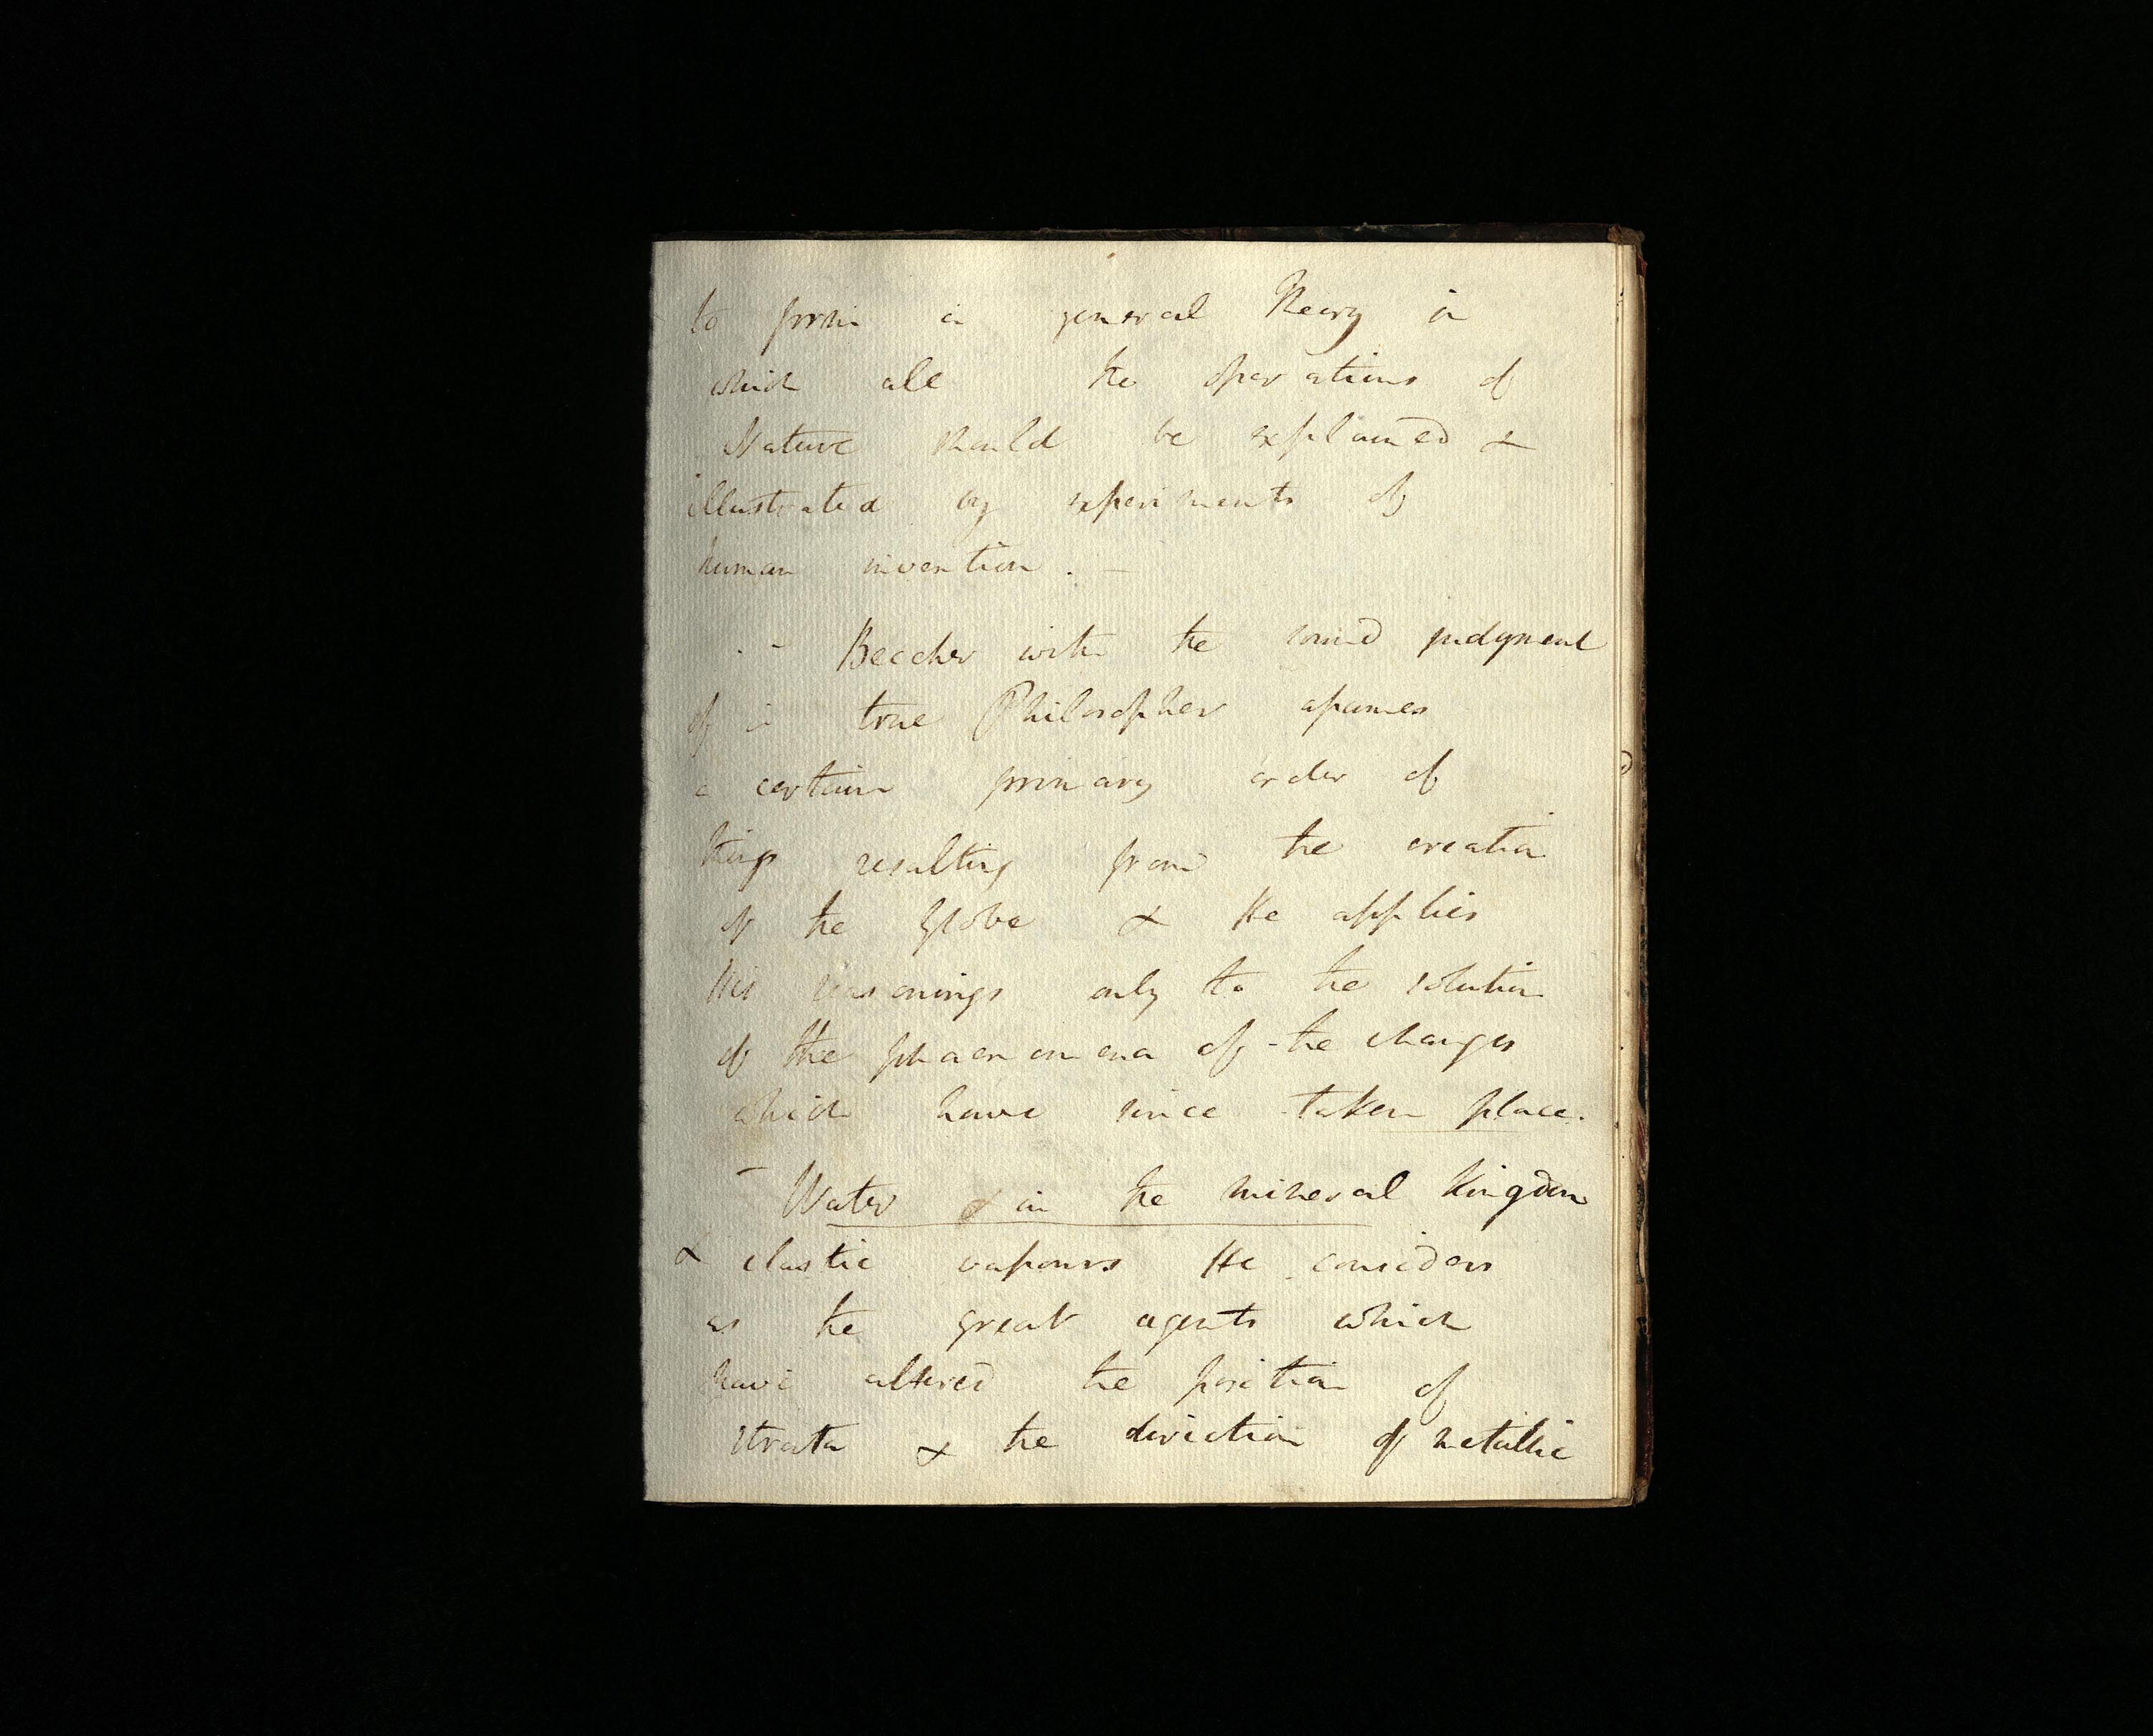 to form a general theory in
which all the operations of
Nature should be explained &
illustrated by experiments of
human invention. —
- Beccher with the sound judgment
of a true Philosopher assumes
a certain primary order of
things resulting from the creation
of the globe & He applies
his reasonings only to the solution
of the phaenomena of the changes
which have since taken place.
- Water & in the mineral Kingdom
& elastic vapours He considers
as the great agents which
have altered the position of
strata & the direction of metallic